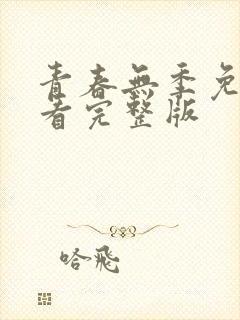 青春無季免
看完整版
哈飛